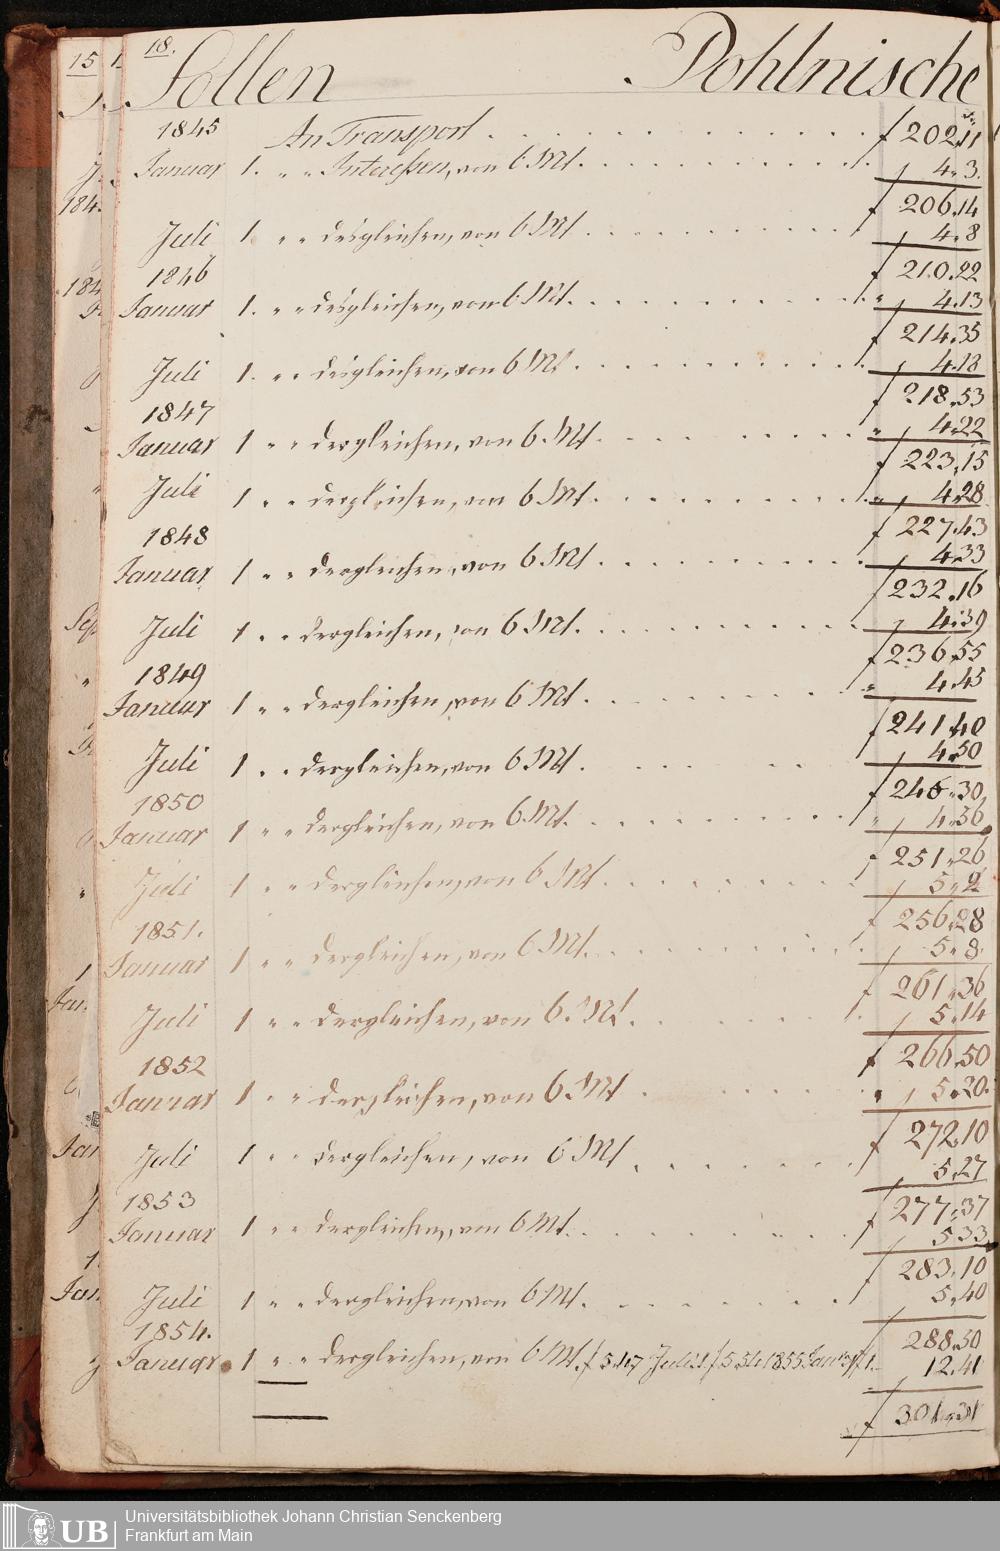 15
18.
Sollen Pohlnische
1845 An Transport f 202.11
Januar 1. " " Interessen, von 6 Mt. 4.3.
f 206.14
Juli 1. " " desgleichen, von 6 Mt 4.8
1846 f 210.22
Januar 1. " " desgleichen, von 6 Mt. 4.13
f 214.35
Juli 1. " " desgleichen, von 6 Mt 4.18
1847 f 218.53
Januar 1 " " dergleichen, von 6 Mt. 4.22
f 223.15
Juli 1 " " dergleichen, von 6 Mt. 4.28
1848 f 227.43
Januar 1 " " dergleichen, von 6 Mt. 4.33
f 232.16
Juli 1 " " dergleichen, von 6 Mt. 4.39
1849 f 236.55
Januar 1 " " dergleichen, von 6 Mt. 4.45
f 241.40
Juli 1 " " dergleichen, von 6 Mt. 4.50
1850 f 246.30
Januar 1 " " dergleichen, von 6 Mt. 4.56
f 251.26
Juli 1 " " dergleichen, von 6 Mt. 5.2
1851. f 256.28
Januar 1 " " dergleichen, von 6 Mt. 5.8.
f 261.36
Juli 1 " " dergleichen, von 6. Mt. 5.14
1852 f 266.50
Januar 1 " " dergleichen, von 6. Mt 5.20.
f 272.10
Juli 1 " " dergleichen, von 6 Mt 5.27
1853 f 277.37
Januar 1 " " dergleichen, von 6 Mt. 5.33
283.10
Juli 1 " " dergleichen, von 6 Mt. 5.40
1854. 288.50
Januar 1 " " dergleichen, von 6 Mt. f 5.47 Juli 1. f 5.54. 1855. 12.41
f 301.31
UB
Universitätsbibliothek Johann Christian Senckenberg
Frankfurt am Main